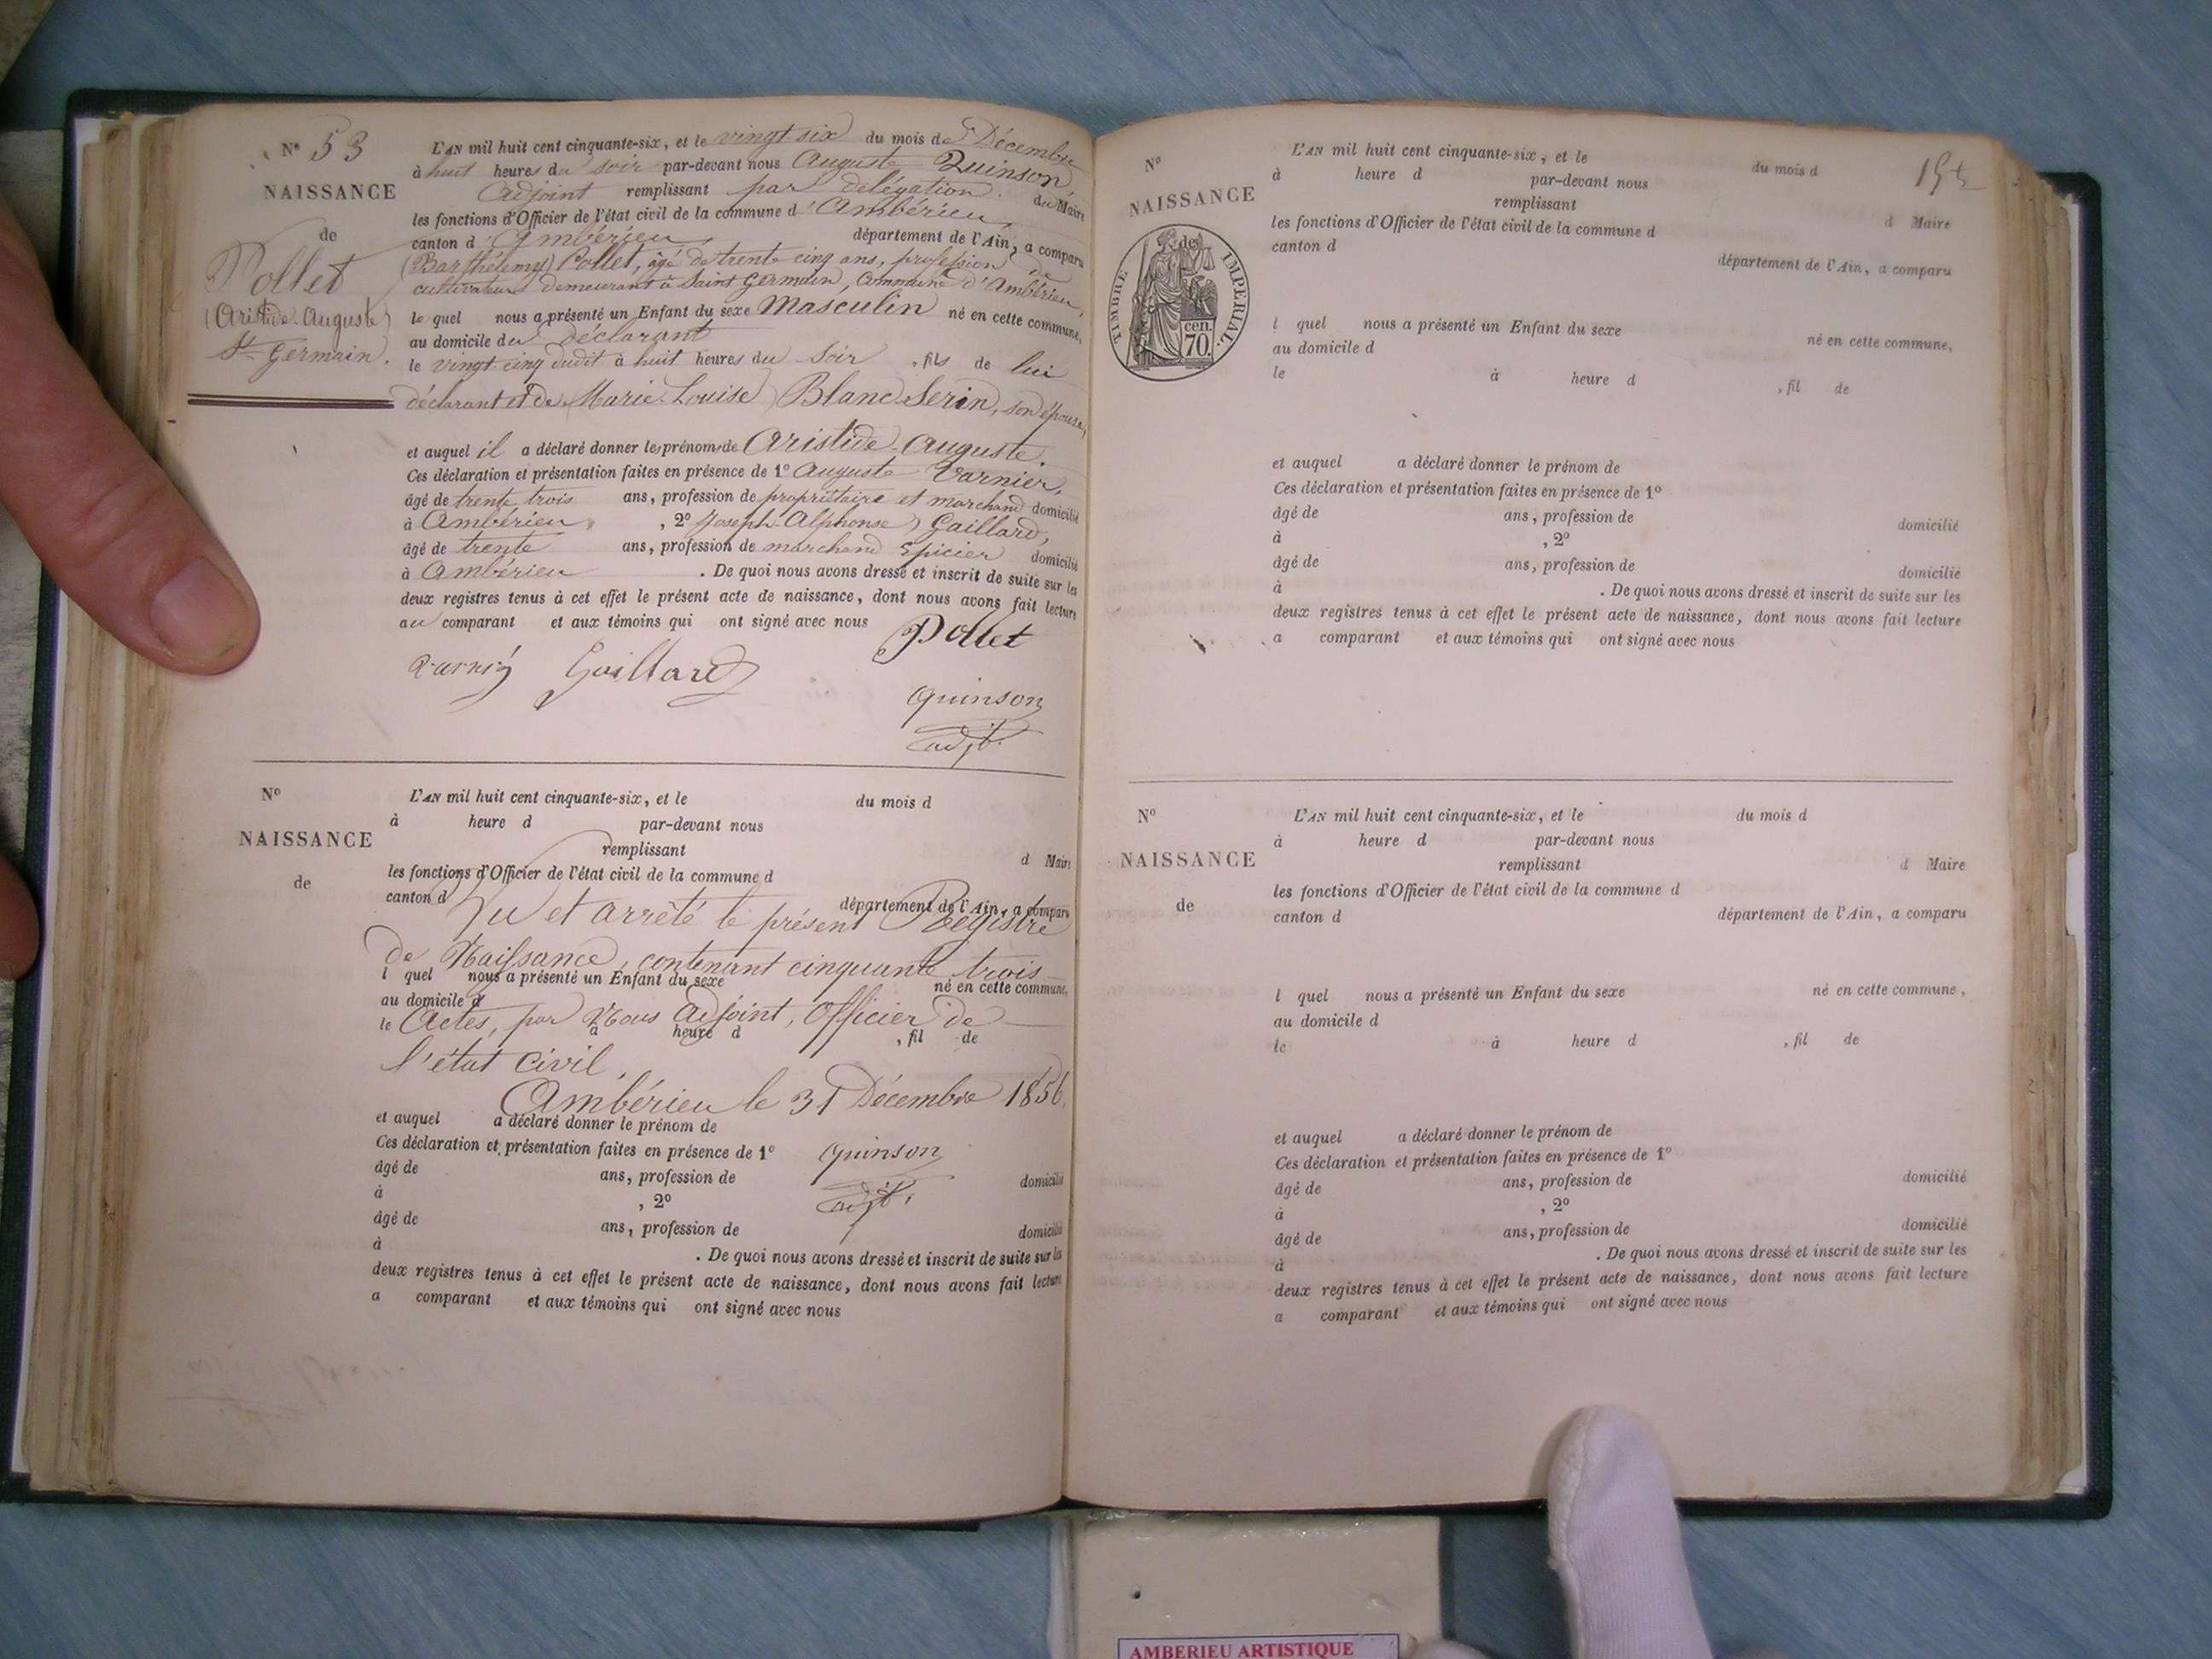 N° 53
NAISSANCE
de
Pollet
(Aristide-Auguste)
St Germain.
L'AN mil huit cent cinquante-six, et le vingt-six du mois de Décembre
à huit heures du soir par-devant nous Auguste Quinson,
Adjoint remplissant par délégation du Maire
les fonctions d'Officier de l'état civil de la commune d'Ambérieu,
canton d'Ambérieu, département de l'Ain, a comparu
(Barthélemy) Pollet, âgé de trente-cinq ans, profession de
cultivateur demeurant à Saint Germain, commune d'Ambérieu,
le quel nous a présenté un Enfant du sexe Masculin né en cette commune,
au domicile du déclarant
le vingt-cinq dudit à huit heures du soir, fils de lui
déclarant et de (Marie-Louise) Blanc-Serin, son épouse,
et auquel il a déclaré donner les prénoms de Aristide-Auguste.
Ces déclaration et présentation faites en présence de 1° Auguste Varnier,
âgé de trente trois ans, profession de propriétaire et marchand domicilié
à Ambérieu, 2° (Joseph-Alphonse) Gaillard,
âgé de trente ans, profession de marchand épicier domicilié
à Ambérieu . De quoi nous avons dressé et inscrit de suite sur les
deux registres tenus à cet effet le présent acte de naissance, dont nous avons fait lecture
au comparant et aux témoins qui ont signé avec nous
Pollet
Varnier Gaillard
Quinson
adjt.
N°
NAISSANCE
de
L'AN mil huit cent cinquante-six, et le du mois d
à heure d par-devant nous
remplissant d Maire
les fonctions d'Officier de l'état civil de la commune d
canton d département de l'Ain, a comparu
Vu et arrêté le présent Registre
de Naissance, contenant cinquante trois
l quel nous a présenté un Enfant du sexe né en cette commune,
au domicile d
Actes, par Nous Adjoint, Officier de
le à heure d , fil de
l'état civil.
Ambérieu le 31 Décembre 1856.
et auquel a déclaré donner le prénom de
Ces déclaration et présentation faites en présence de 1°
Quinson
adjt.
âgé de ans, profession de domicilié
à , 2°
âgé de ans, profession de domicilié
à . De quoi nous avons dressé et inscrit de suite sur les
deux registres tenus à cet effet le présent acte de naissance, dont nous avons fait lecture
a comparant et aux témoins qui ont signé avec nous
N°
NAISSANCE
de
TIMBRE IMPERIAL.
70. cen.
L'AN mil huit cent cinquante-six, et le du mois d
à heure d par-devant nous
remplissant d Maire
les fonctions d'Officier de l'état civil de la commune d
canton d département de l'Ain, a comparu
l quel nous a présenté un Enfant du sexe né en cette commune,
au domicile d
le à heure d , fil de
et auquel a déclaré donner le prénom de
Ces déclaration et présentation faites en présence de 1°
âgé de ans, profession de domicilié
à , 2°
âgé de ans, profession de domicilié
à . De quoi nous avons dressé et inscrit de suite sur les
deux registres tenus à cet effet le présent acte de naissance, dont nous avons fait lecture
a comparant et aux témoins qui ont signé avec nous
N°
NAISSANCE
de
L'AN mil huit cent cinquante-six, et le du mois d
à heure d par-devant nous
remplissant d Maire
les fonctions d'Officier de l'état civil de la commune d
canton d département de l'Ain, a comparu
l quel nous a présenté un Enfant du sexe né en cette commune,
au domicile d
le à heure d , fil de
et auquel a déclaré donner le prénom de
Ces déclaration et présentation faites en présence de 1°
âgé de ans, profession de domicilié
à , 2°
âgé de ans, profession de domicilié
à . De quoi nous avons dressé et inscrit de suite sur les
deux registres tenus à cet effet le présent acte de naissance, dont nous avons fait lecture
a comparant et aux témoins qui ont signé avec nous
AMBERIEU ARTISTIQUE